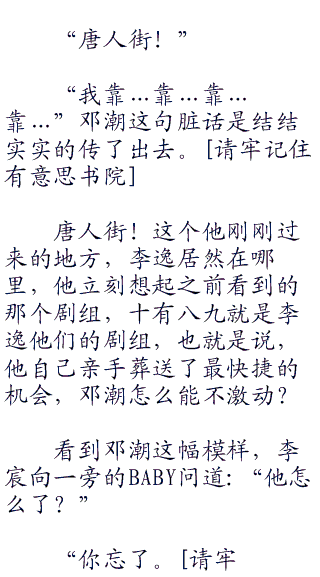 “唐人街！”
“我靠…靠…靠…
靠…”邓潮这句脏话是结结
实实的传了出去。[请牢记住
有意思书院]
唐人街！这个他刚刚过
来的地方，李逸居然在哪
里，他立刻想起之前看到的
那个剧组，十有八九就是李
逸他们的剧组，也就是说，
他自己亲手葬送了最快捷的
机会，邓潮怎么能不激动？
看到邓潮这幅模样，李
宸向一旁的BABY问道：“他怎
么了？”
“你忘了。[请牢